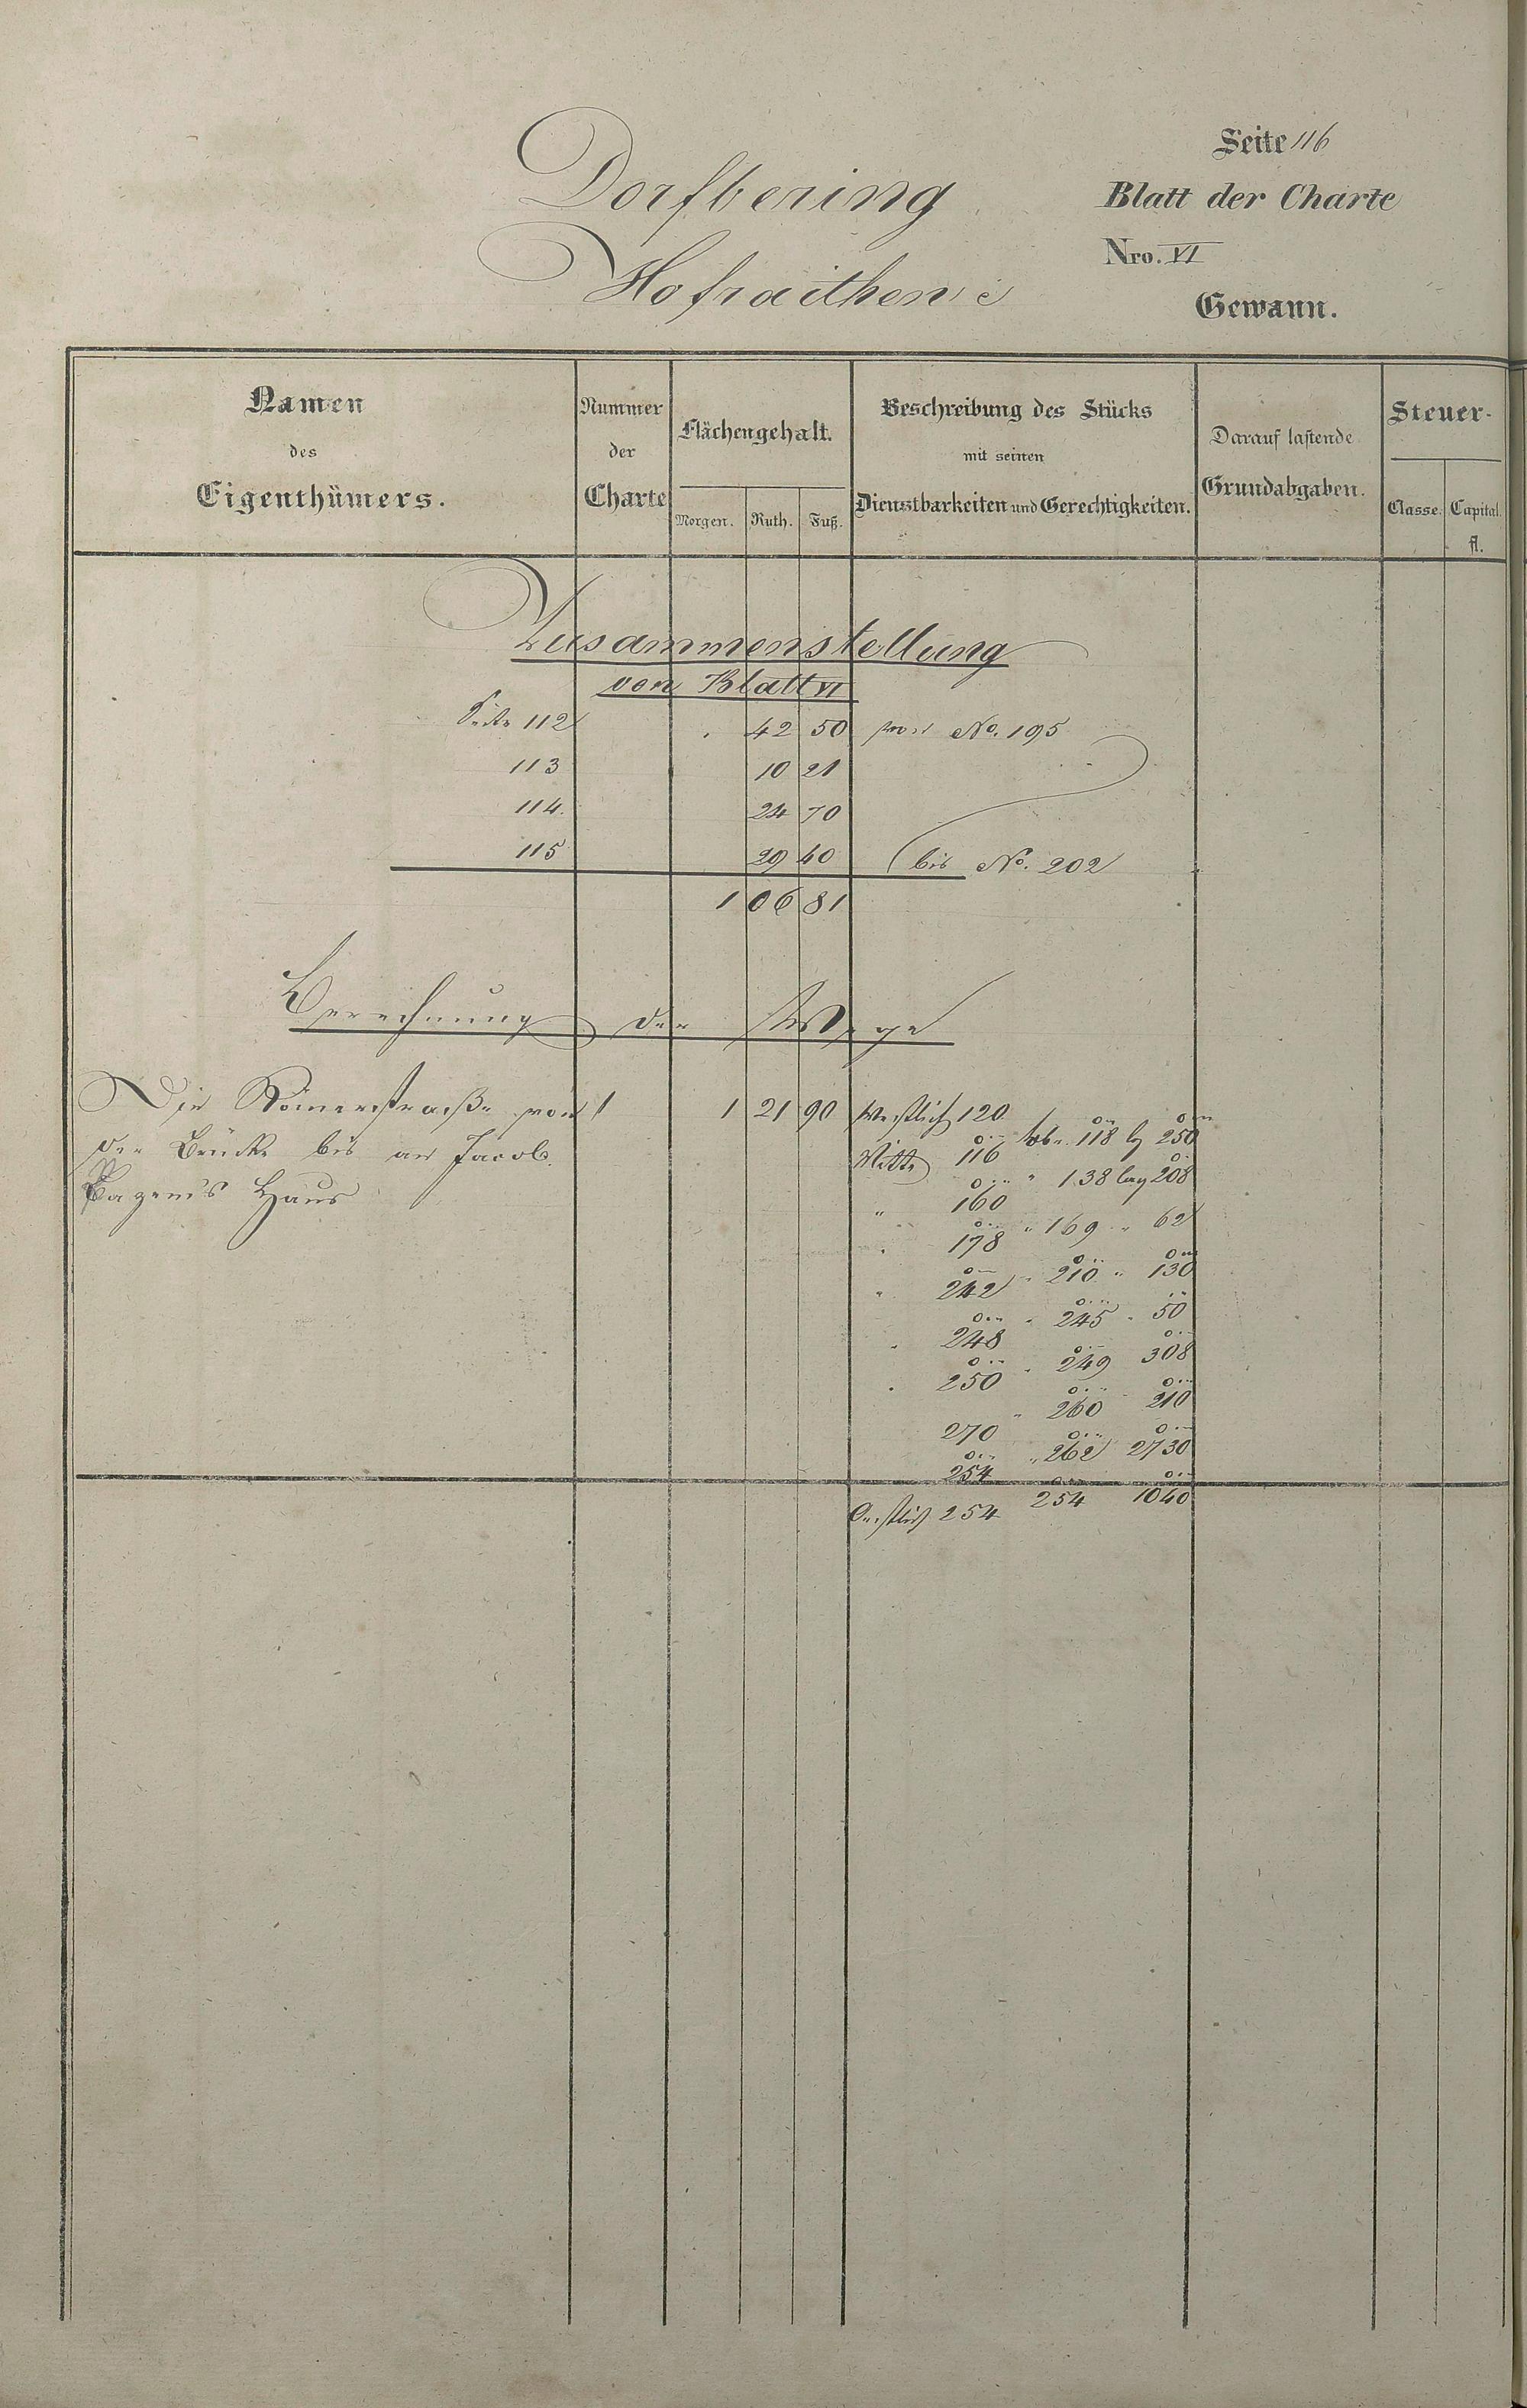 Seite 116
Dorfbering
Blatt der Charte
Nro. VI
Hofraithen
Gewann.
Namen des Eigenthümers.
Nummer der Charte
Flächengehalt.
Morgen. Ruth. Fuß.
Beschreibung des Stücks mit seinen Dienstbarkeiten und Gerechtigkeiten.
Darauf lastende Grundabgaben.
Steuer-
Classe. Capital. fl.
Zusammenstellung
von Blatt VI
Seite 112 42 50 von No. 195
113 10 21
114. 24 70
115 29 40 bis No. 202
1 06 81
Berechnung der Wege
Die Römerstraße von 1 1 21 90 Westlich 120
der Brücke bis an Jacob
Haus
118 250
Mitte 116
138 lag 208
" 160
" 169 " 62
" 178
" 210 " 130
" 242
" 245 " 50
" 248
" 249 308
" 250
" 260 210
270
" 262 2730
254
254 1040
Oestlich 254